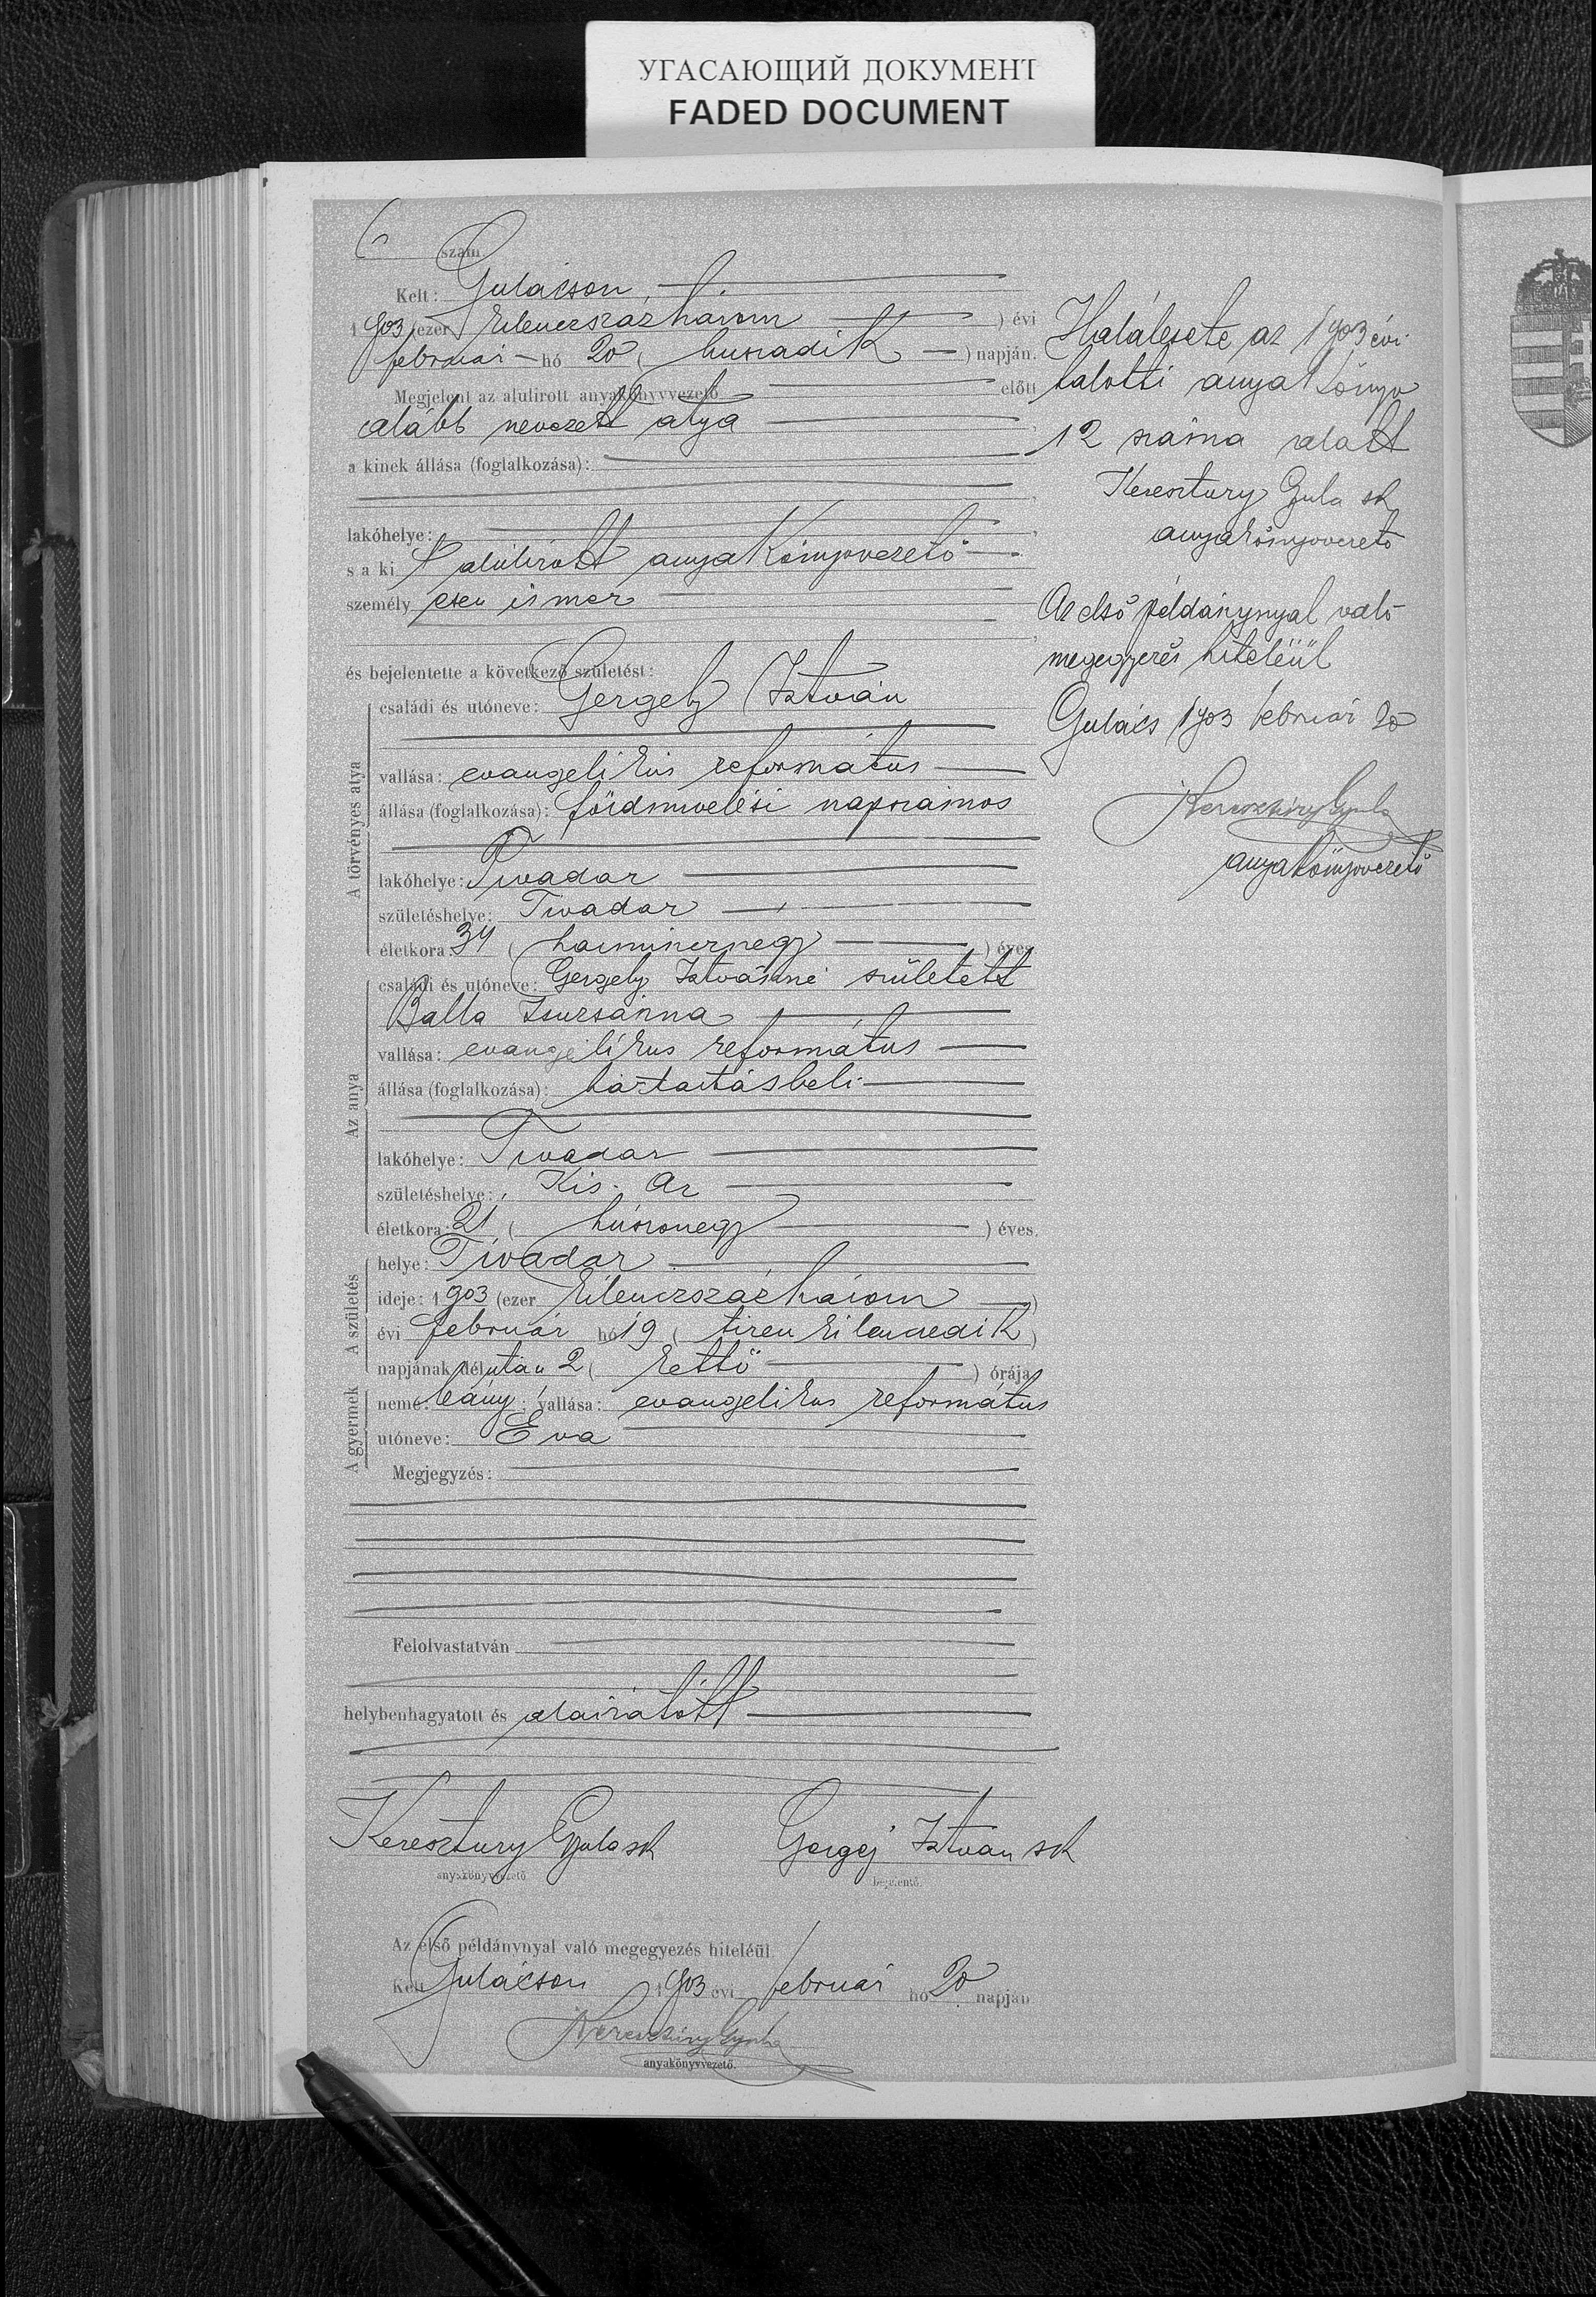 УГАСАЮЩИЙ ДОКУМЕНТ
FADED DOCUMENT
6 szám.
Kelt: Gulácson,
1903 (ezer kilenczszázhárom ) évi
február hó 20 ( huszadik ) napján.
Megjelent az alulirott anyakönyvvezető előtt
alább nevezett atya
a kinek állása (foglalkozása):
lakóhelye:
s a ki t alúlirott anyakönyvvezető
személy esen ismer
és bejelentette a következő születést:
A törvényes atya
családi és utóneve: Gergely István
vallása: evangelikus református
állása (foglalkozása): földmivelési napszámos
lakóhelye: Tivadar
születéshelye: Tivadar
életkora: 34 ( harmincznegy ) éves
Az anya
családi és utóneve: Gergely Istvánné született
Balla Zsuzsánna
vallása: evangelikus református
állása (foglalkozása): háztartásbeli
lakóhelye: Tivadar
születéshelye: Kis-Ar
életkora: ( húsznegy ) éves.
A születés
helye: Tivadar
ideje: 1903 (ezer kilenczszázhárom )
évi február hó 19 ( tizenkilenczedik )
napjának délután 2 ( kettő ) órája
A gyermek
neme: leány; vallása: evangelikus református
utóneve: Eva
Megjegyzés:
Felolvastatván
helybenhagyatott és aláiratott
Keresztury Gyula sk Gergej István sk
anyakönyvvezető bejelentő.
Az első példánynyal való megegyezés hiteléül
Kelt Gulácson 1903 évi február hó 20 napján
Keresztúry Gyula
anyakönyvvezető.
Halálesete az 1903 évi
halotti anyakönyv
12 száma alatt
Keresztury Gula sk
anyakönyvvezető
Az első példánynyal való
megegyezés hiteléül
Gulács 1903 február 20
Keresztúry Gyula
anyakönyvvezető